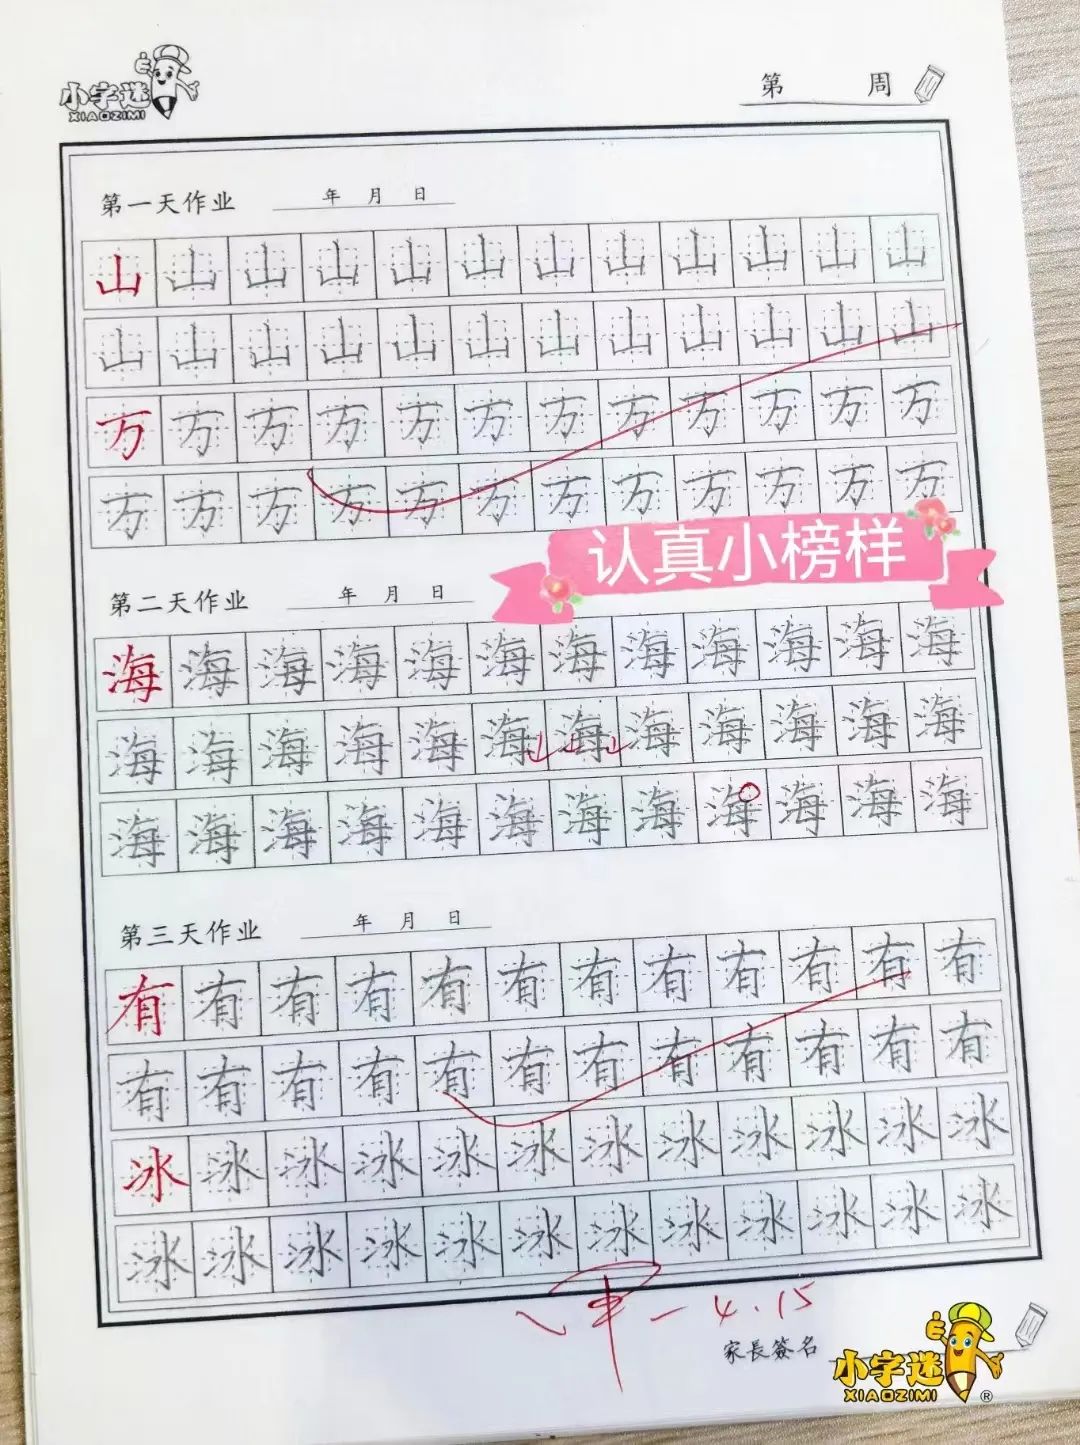 小字迷
XIAOZIMI
第 周
第一天作业 年 月 日
山山山山山山山山山山山山
山山山山山山山山山山山山
万万万万万万万万万万万万
万万万万万万万万万万万万
认真小榜样
第二天作业 年 月 日
海海海海海海海海海海海海
海海海海海海海海海海海海
海海海海海海海海海海海海
第三天作业 年 月 日
有有有有有有有有有有有有
有有有有有有有有有有有有
冰冰冰冰冰冰冰冰冰冰冰冰
冰冰冰冰冰冰冰冰冰冰冰冰
4.15
家長簽名
小字迷
XIAOZIMI®